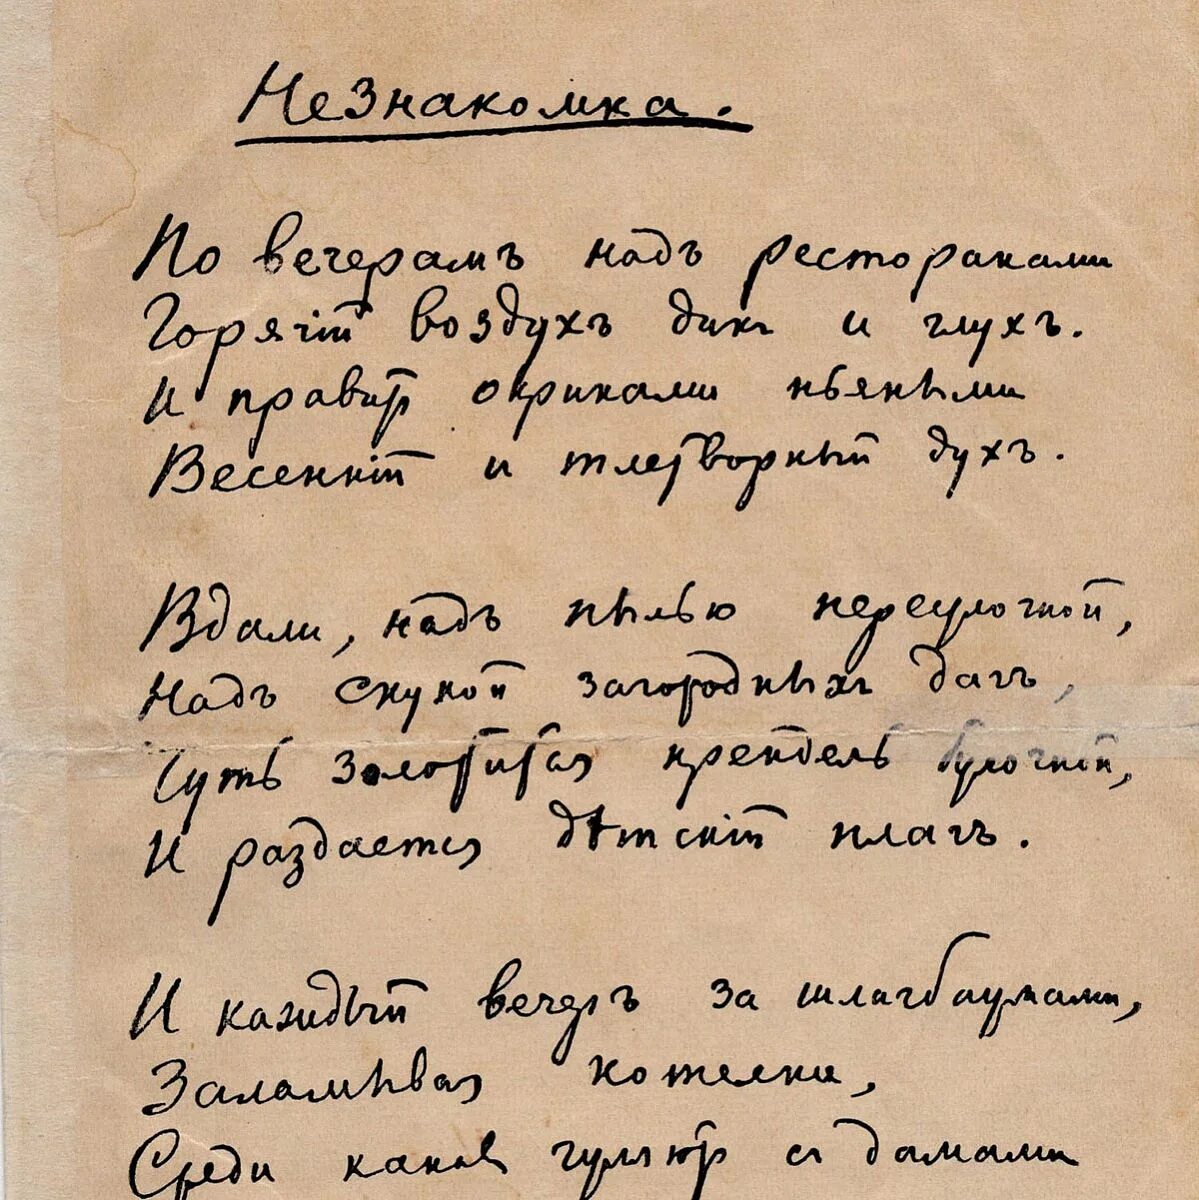 Незнакомка.
По вечерамъ надъ ресторанами
Горячій воздухъ дикъ и глухъ.
И правитъ окриками пьяными
Весенній и тлетворный духъ.
Вдали, надъ пылью переулочной,
Надъ скукой загородныхъ дачъ,
Чуть золотится крендель булочной,
И раздается дѣтскій плачъ.
И каждый вечеръ за шлагбаумами,
Заламывая котелки,
Среди канавъ гуляютъ съ дамами